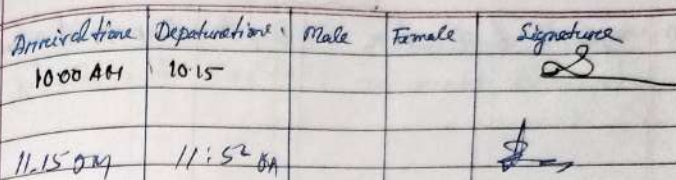 Arrival time Depaturetime. Male Female Signature
10:00 AM 10.15
11.15 11:52